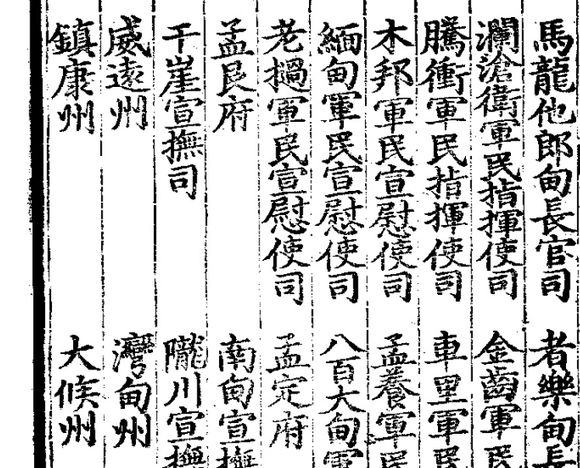 馬龍他郎甸長官司 者樂甸長
瀾滄衛軍民指揮使司 金齒軍民
騰衝軍民指揮使司 車里軍民
木邦軍民宣慰使司 孟養軍民
緬甸軍民宣慰使司 八百大甸軍
老撾軍民宣慰使司 孟定府
孟艮府 南甸宣撫
干崖宣撫司 隴川宣撫
威遠州 灣甸州
鎮康州 大候州